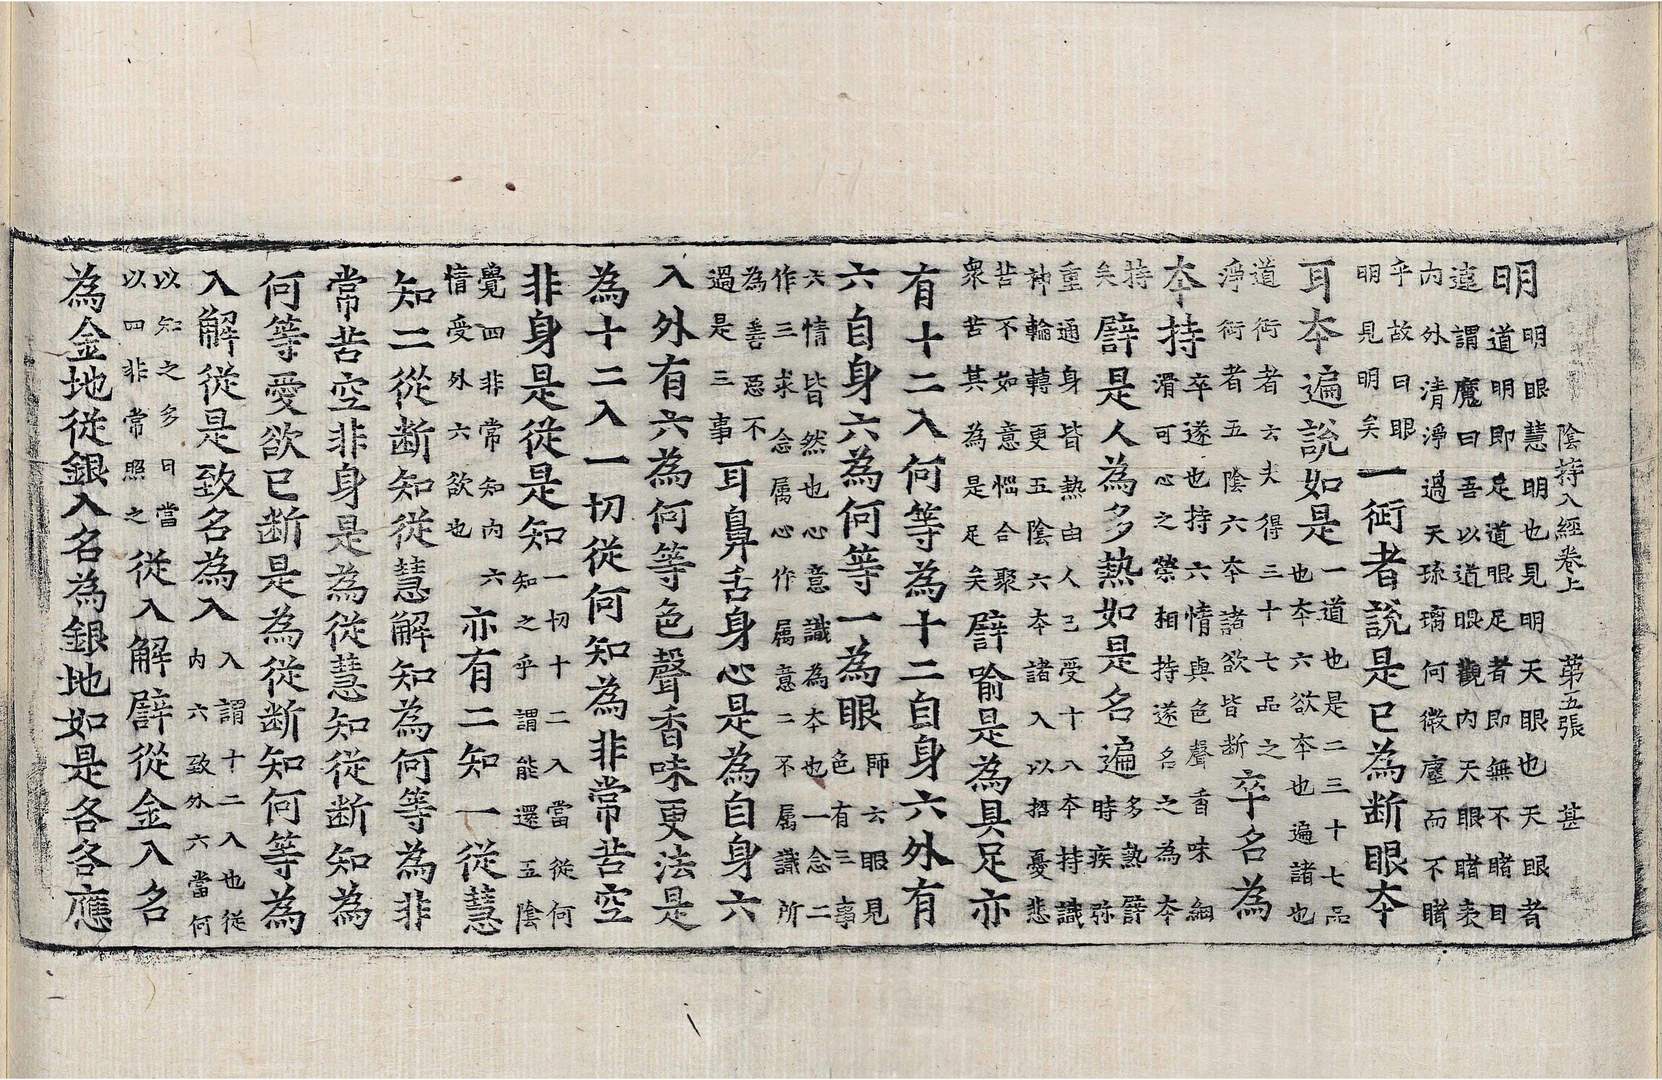 陰持入經卷上　第五張　甚
明
明眼慧明也見明天眼也天眼者
道明即是道眼足者即無不睹目
遠謂魔曰吾以道眼觀內天眼睹表
內外清淨過天琉璃何微塵而不睹
乎故曰眼
明見明矣
一衍者說是已為断眼夲
耳夲遍說如是
一道也是二三十七品
也夲六欲夲也遍諸也
道衍者云夫得三十七品之
淨衍者五陰六夲諸欲皆断
卒名為
夲持
卒遂也持六情與色聲香味細
滑可心之榮相持遂名之為夲
持
矣
譬是人為多熱如是名遍
多熱譬
時疾殎
重通身皆熱由人已受十八夲持識
神輪轉更五陰六夲諸入以招憂悲
苦不如意惱合聚
衆苦其為是足矣
譬喻是為具足亦
有十二入何等為十二自身六外有
六自身六為何等一為眼
師云眼見
色有三事
六情皆然也心意識為夲也一念二
作三求念属心作属意二不属識所
為善惡不
過是三事
耳鼻舌身心是為自身六
入外有六為何等色聲香味更法是
為十二入一切從何知為非常苦空
非身是從是知
一切十二入當從何
知之乎謂能還五陰
覺四非常知內六
情受外六欲也
亦有二知一從慧
知二從断知從慧解知為何等為非
常苦空非身是為從慧知從断知為
何等愛欲已断是為從断知何等為
入解從是致名為入
入謂十二入也從
內六致外六當何
以知之多曰當
以四非常照之
從入解譬從金入名
為金地從銀入名為銀地如是各各應